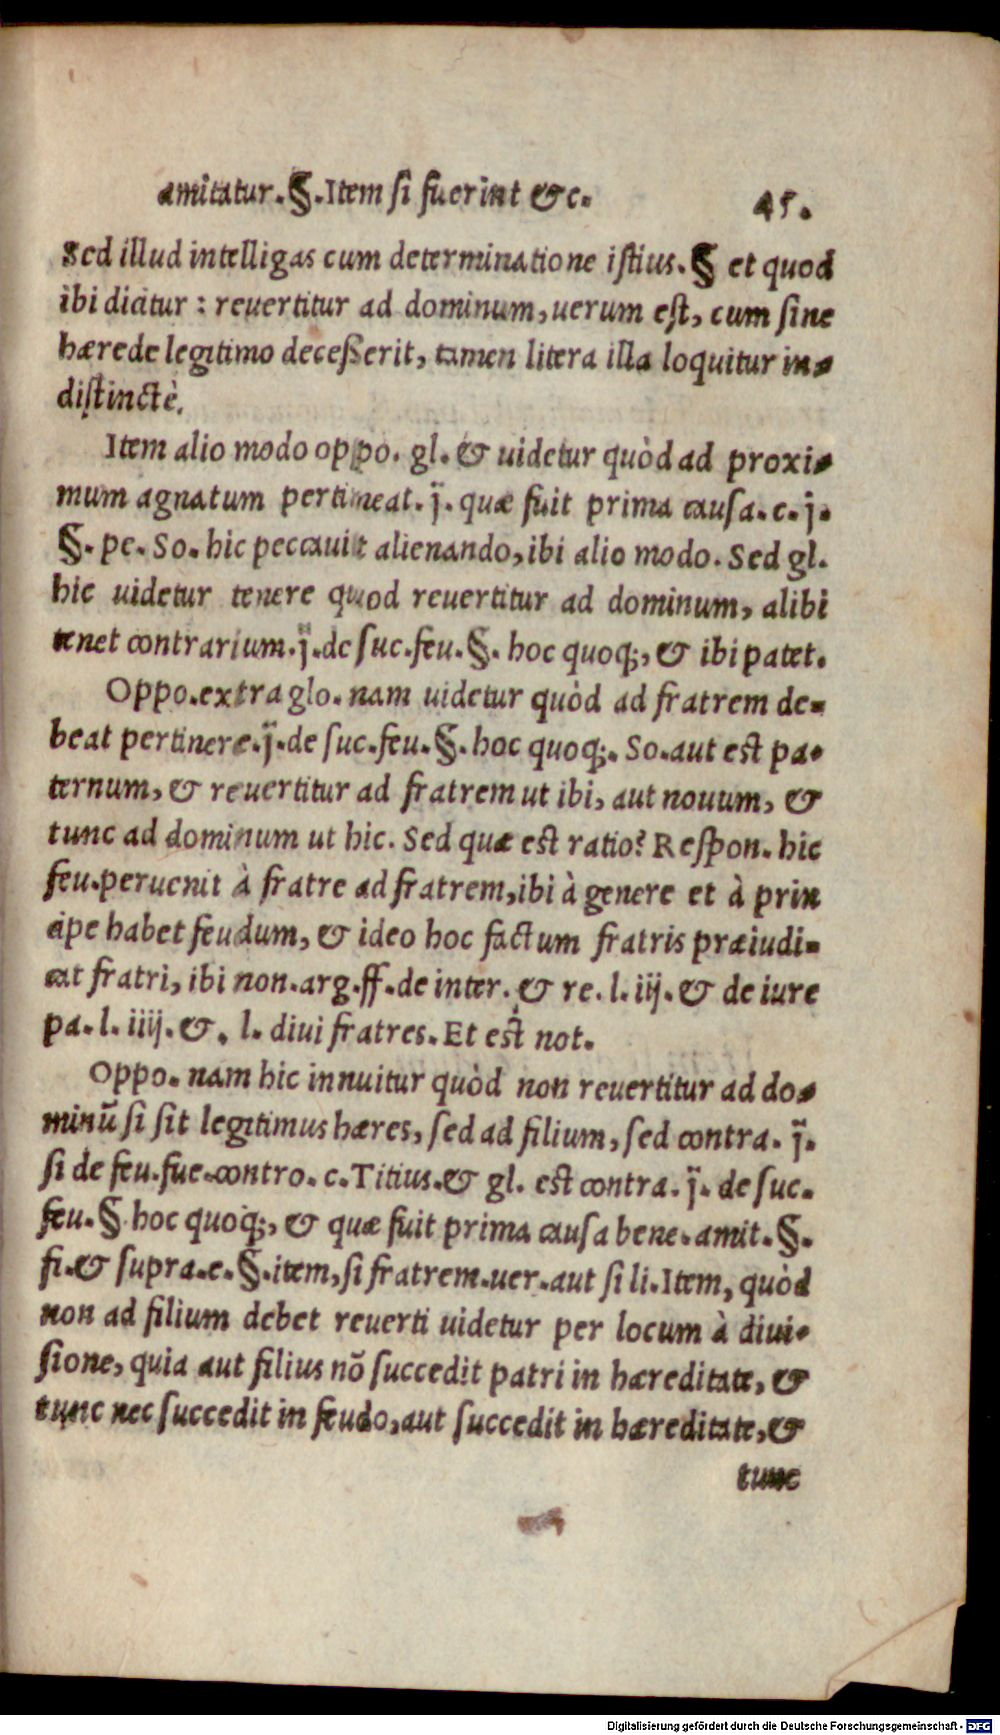 amitatur.§.Item ſi fuerint &c. 45.
Sed illud intelligas cum determinatione iſtius.§ et quod
ibi dicitur : reuertitur ad dominum, uerum eſt, cum ſine
hærede legitimo deceßerit, tamen litera illa loquitur in-
diſtinctè.
Item alio modo oppo. gl. & uidetur quòd ad proxi-
mum agnatum pertineat. j̈. quæ fuit prima cauſa. c. j.
§. pe. So. hic peccauit alienando, ibi alio modo. Sed gl.
hic uidetur tenere quod reuertitur ad dominum, alibi
tenet contrarium. j̈. de ſuc. feu. §. hoc quoq;, & ibi patet.
Oppo. extra glo. nam uidetur quòd ad fratrem de-
beat pertinere. j̈. de ſuc. feu. §. hoc quoq;. So. aut eſt pa-
ternum, & reuertitur ad fratrem ut ibi, aut nouum, &
tunc ad dominum ut hic. Sed quæ eſt ratio? Reſpon. hic
feu. peruenit à fratre ad fratrem, ibi à genere et à prin
cipe habet feudum, & ideo hoc factum fratris præiudi-
cat fratri, ibi non. arg. ff. de inter. & re. l. iij. & de iure
pa. l. iiij. &. l. diui fratres. Et eſt not.
Oppo. nam hic innuitur quòd non reuertitur ad do-
minũ ſi ſit legitimus hæres, ſed ad filium, ſed contra. j̈.
ſi de feu. fue. contro. c. Titius. & gl. eſt contra. j̈. de ſuc.
feu. § hoc quoq;, & quæ fuit prima cauſa bene. amit. §.
fi. & ſupra. e. §. item, ſi fratrem. uer. aut ſi li. Item, quòd
non ad filium debet reuerti uidetur per locum à diui-
ſione, quia aut filius nõ ſuccedit patri in hæreditate, &
tunc nec ſuccedit in feudo, aut ſuccedit in hæreditate, &
tunc
Digitalisierung gefördert durch die Deutsche Forschungsgemeinschaft - DFG